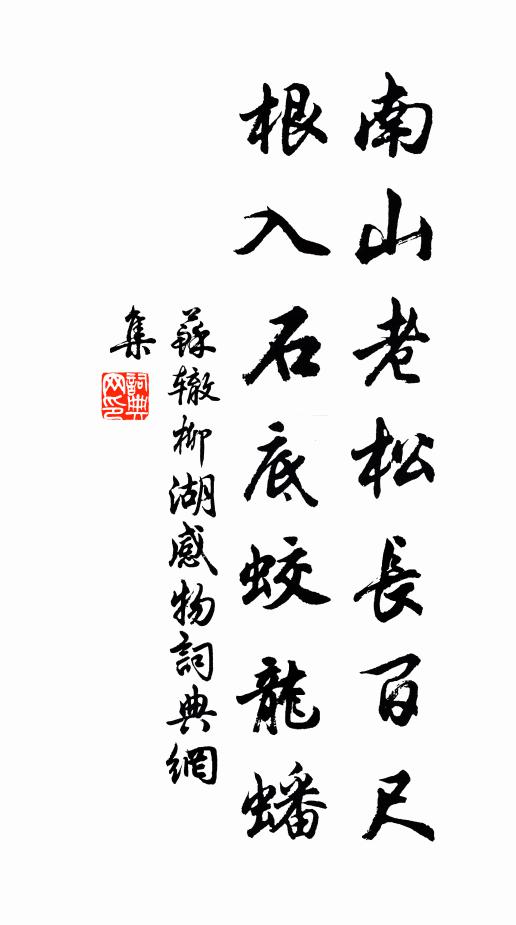 南山老松長百尺
根入石底蛟龍蟠
蘇辙柳湖感物詞典網
集
詞典網印